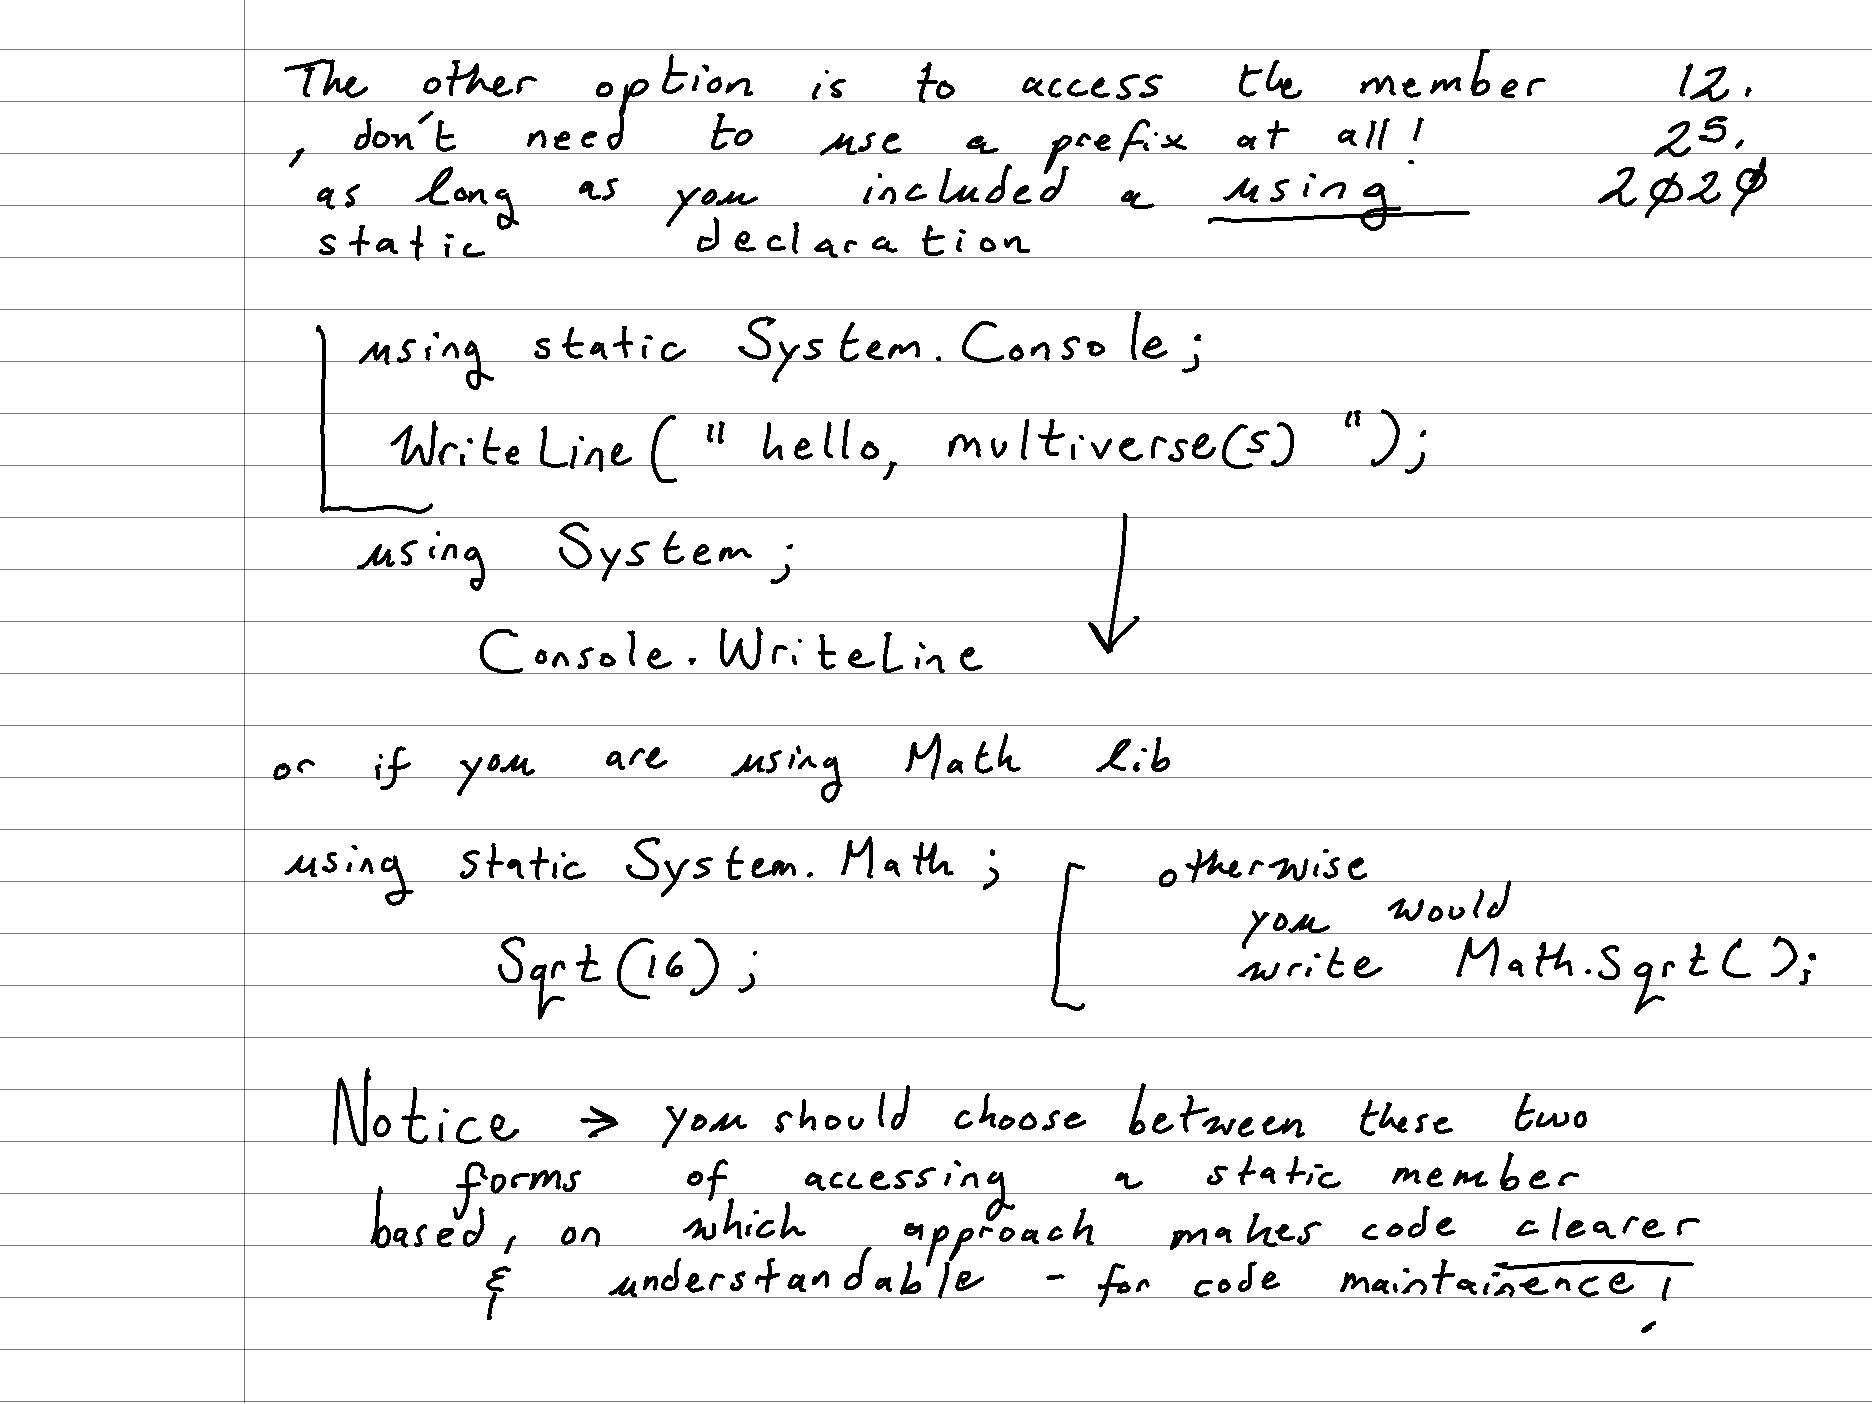 The other option is to access the member 12.
, don't need to use a prefix at all! 25.
as long as you included a using 2020
static declaration
using static System.Console;
WriteLine(" hello, multiverse(s) ");
using System;
Console.WriteLine
or if you are using Math lib
using static System.Math; otherwise
you would
Sqrt(16); write Math.Sqrt();
Notice → you should choose between these two
forms of accessing a static member
based, on which approach makes code clearer
& understandable - for code maintainence!